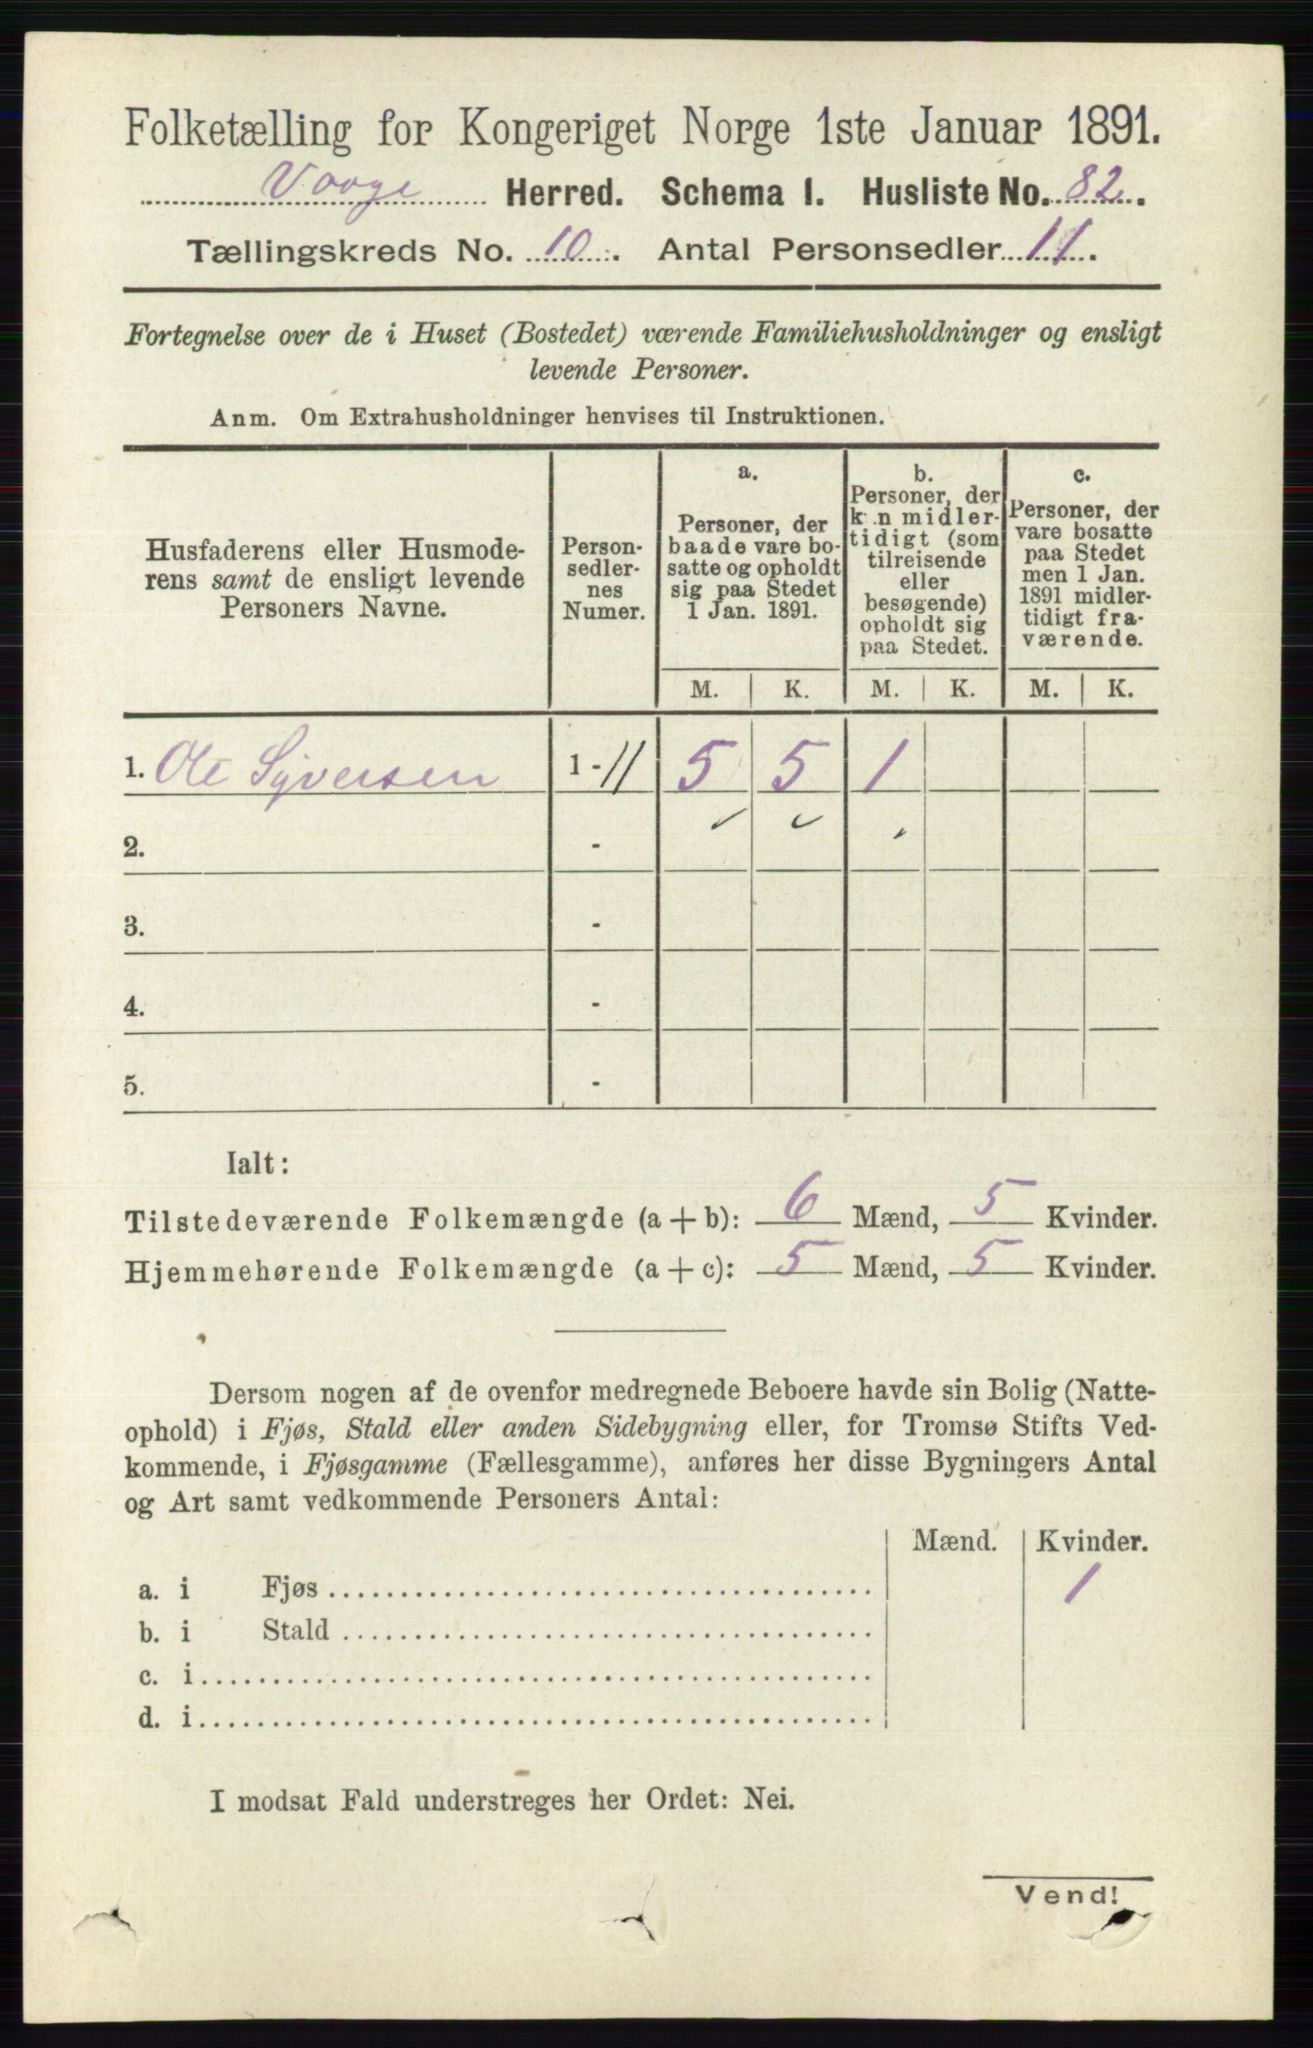 Folketælling for Kongeriget Norge 1ste Januar 1891.
Vaage Herred. Schema I. Husliste No. 82.
Tællingskreds No. 10. Antal Personsedler 11.
Fortegnelse over de i Huset (Bostedet) værende Familiehusholdninger og ensligt
levende Personer.
Anm. Om Extrahusholdninger henvises til Instruktionen.
Husfaderens eller Husmode-
rens samt de ensligt levende
Personers Navne.
Person-
sedler-
nes
Numer.
a.
Personer, der
baade vare bo-
satte og opholdt
sig paa Stedet
1 Jan. 1891.
b.
Personer, der
kun midler-
tidigt (som
tilreisende
eller
besøgende)
opholdt sig
paa Stedet.
c.
Personer, der
vare bosatte
paa Stedet
men 1 Jan.
1891 midler-
tidigt fra-
værende.
M. K. M. K. M. K.
1. Ole Syversen 1 - 11 5 5 1
2. -
3. -
4. -
5. -
Ialt:
Tilstedeværende Folkemængde (a + b): 6 Mænd, 5 Kvinder.
Hjemmehørende Folkemængde (a + c): 5 Mænd, 5 Kvinder.
Dersom nogen af de ovenfor medregnede Beboere havde sin Bolig (Natte-
ophold) i Fjøs, Stald eller anden Sidebygning eller, for Tromsø Stifts Ved-
kommende, i Fjøsgamme (Fællesgamme), anføres her disse Bygningers Antal
og Art samt vedkommende Personers Antal:
Mænd. Kvinder.
a. i Fjøs 1
b. i Stald
c. i
d. i
I modsat Fald understreges her Ordet: Nei.
Vend!